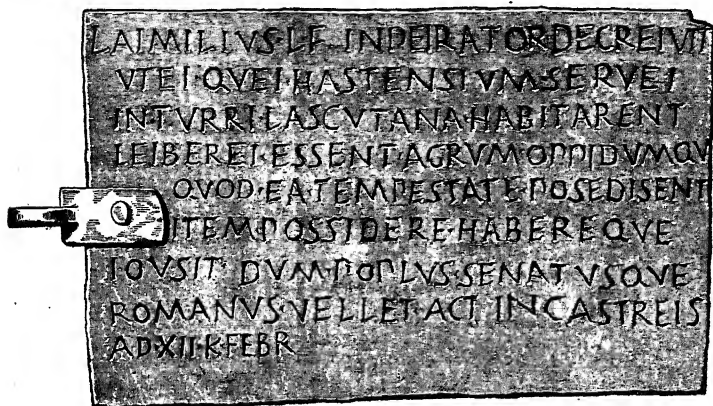 L·AIMILIVS·L·F·INPEIRATOR·DECREIVIT
VTEI·QVEI·HASTENSIVM·SERVEI
IN·TVRRI·LASCVTANA·HABITARENT
LEIBEREI·ESSENT·AGRVM·OPPIDVMQV
QVOD·EA·TEMPESTATE·POSEDISENT
ITEM·POSSIDERE·HABEREQVE
IOVSIT DVM·POPLVS·SENATVSQVE
ROMANVS·VELLET·ACT IN CASTREIS
AD·XII·K·FEBR